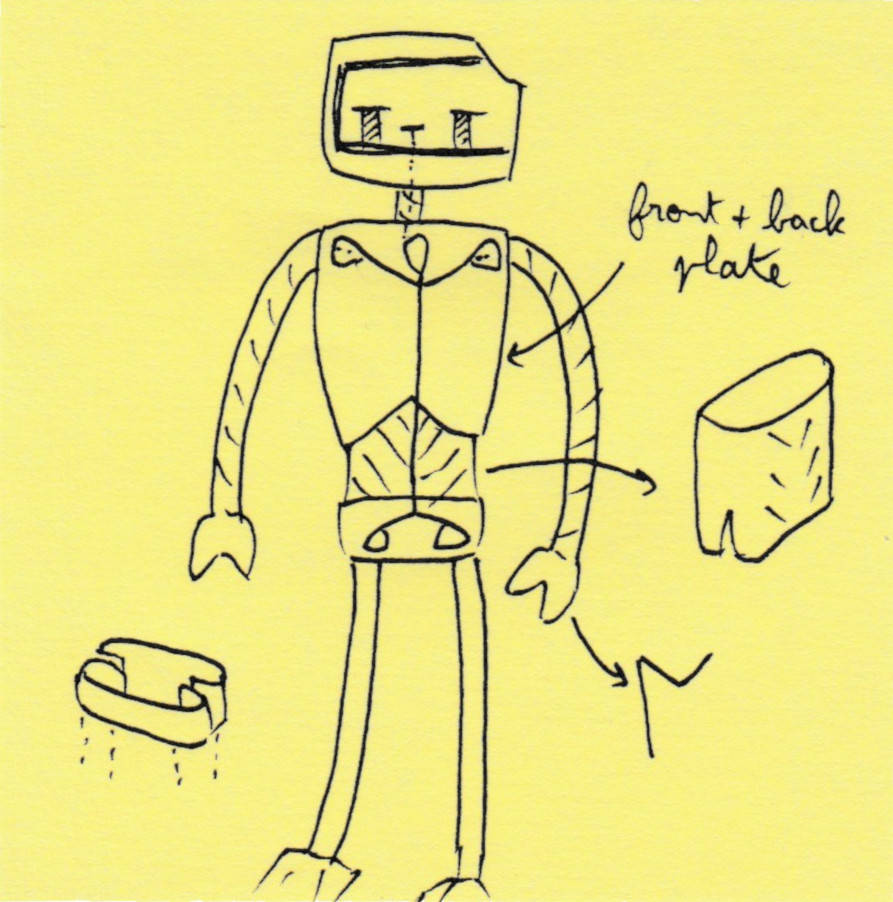 front + back
plate